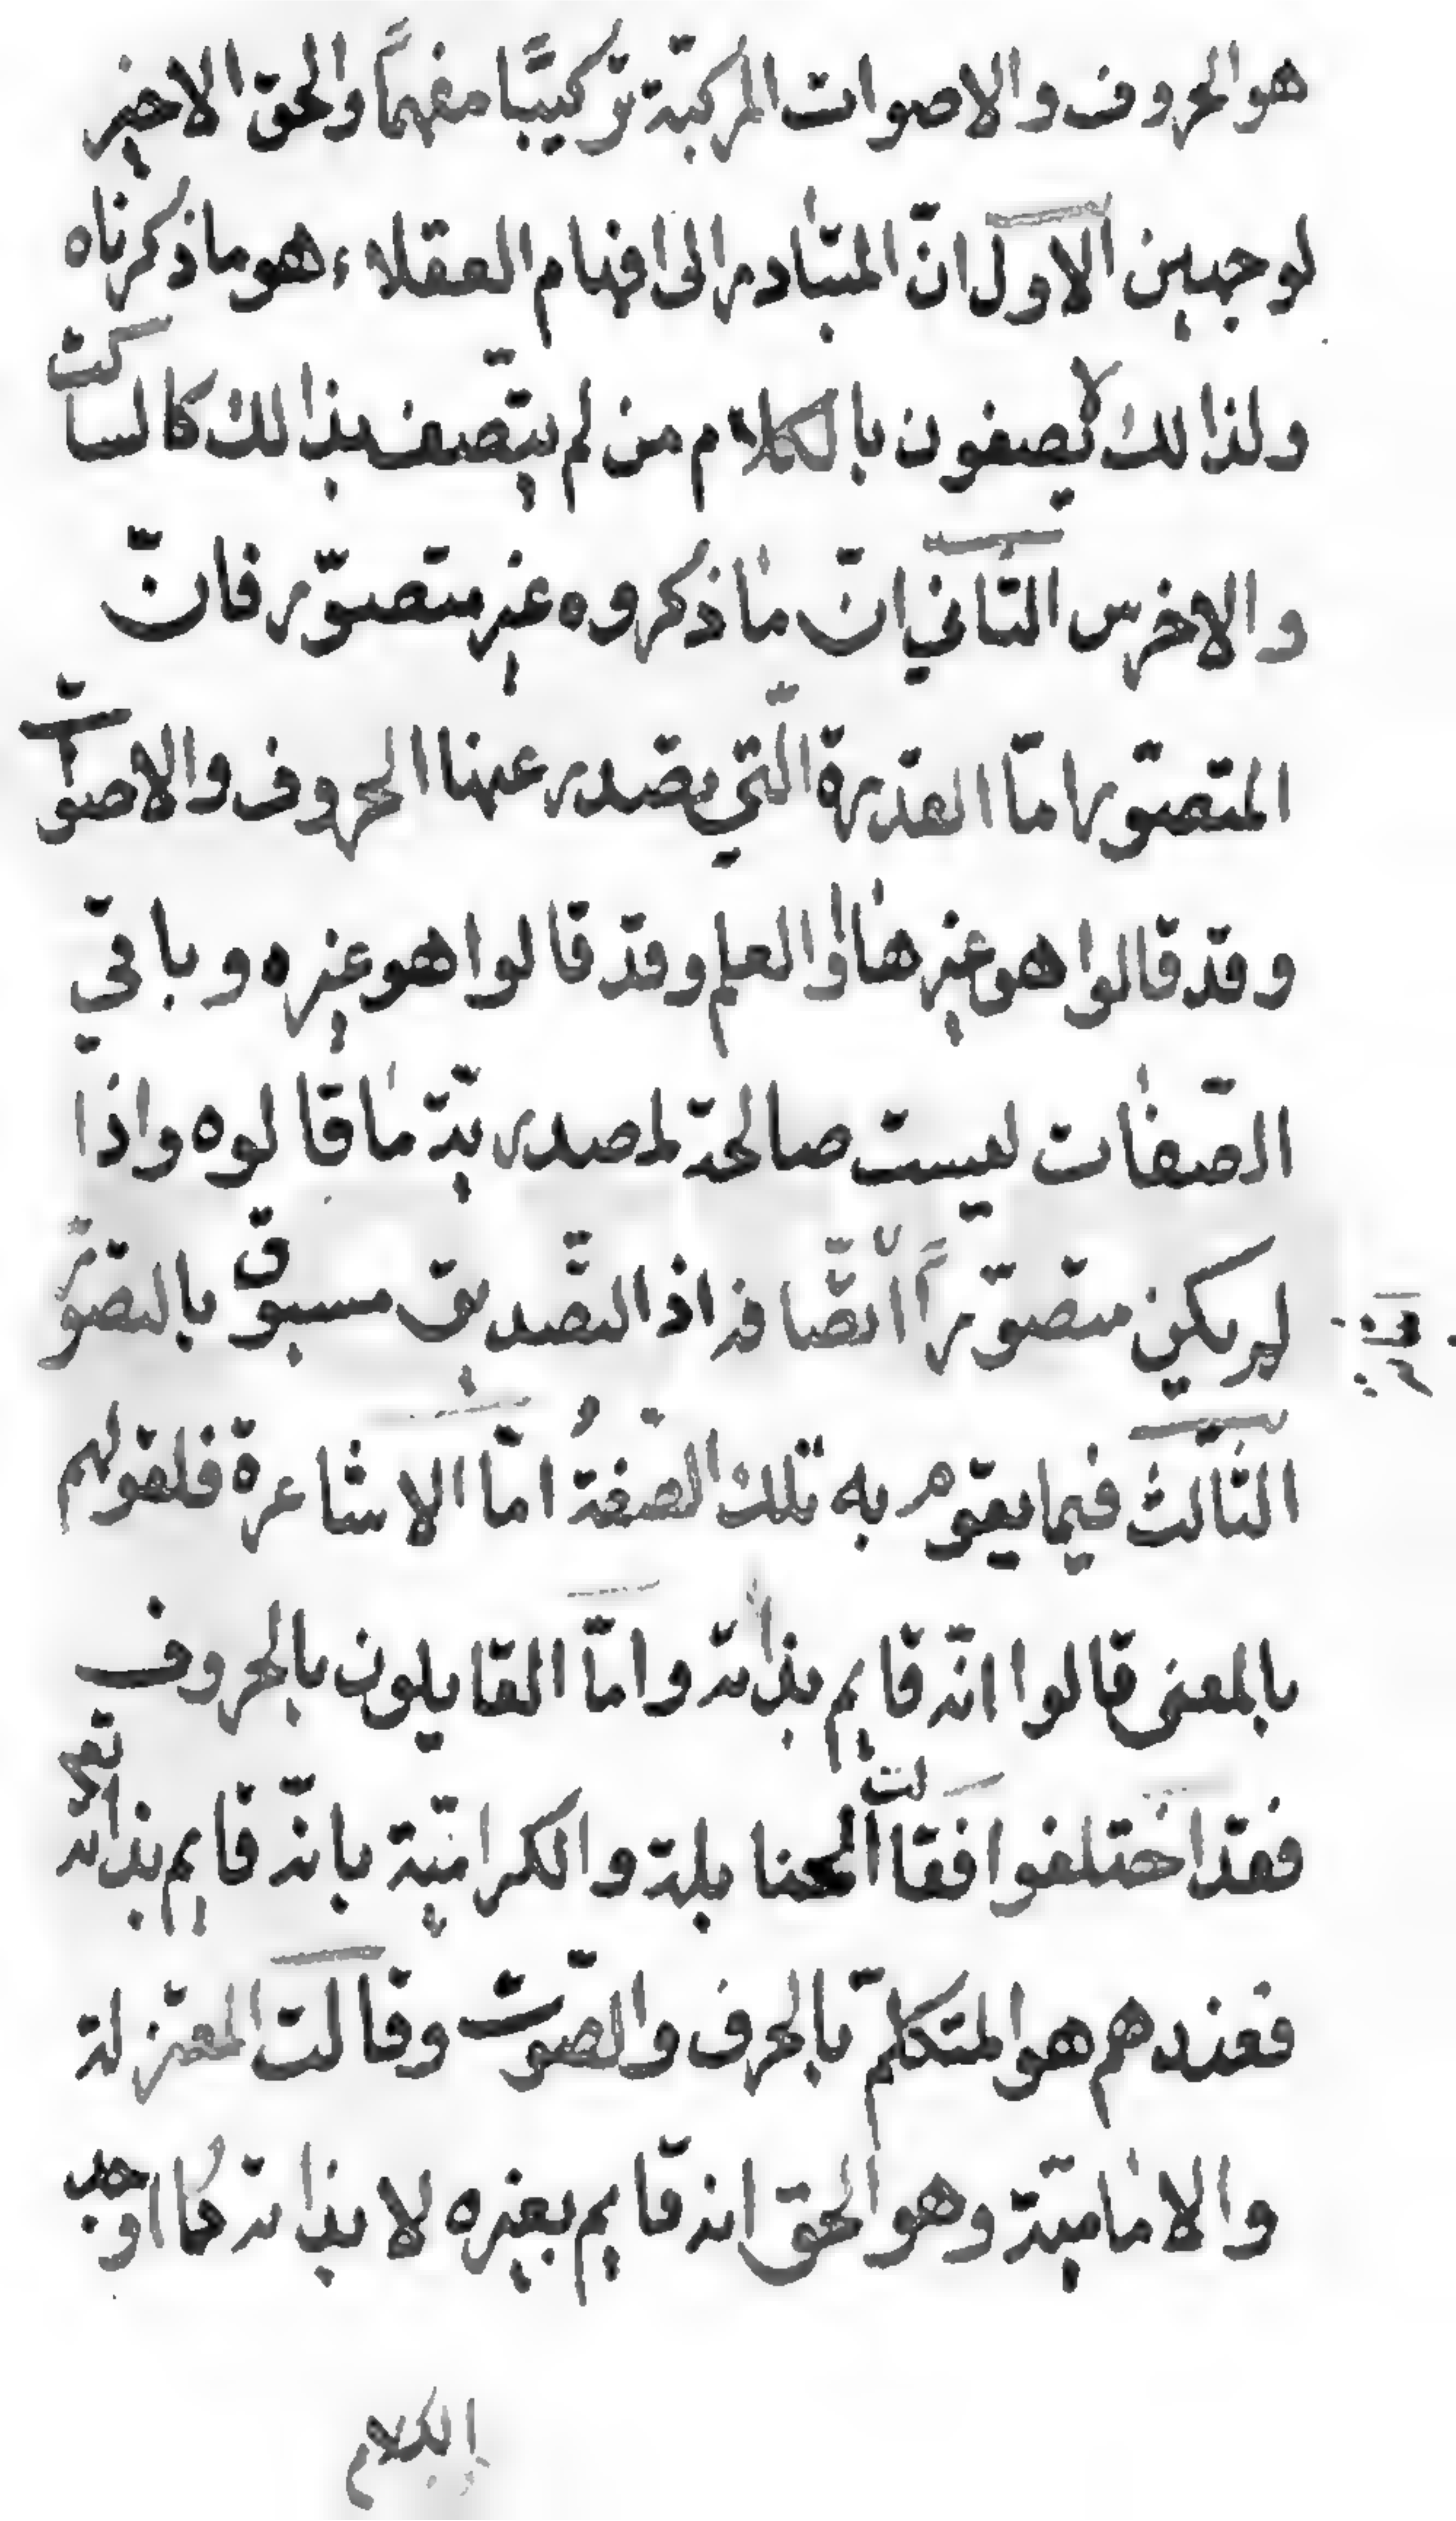 هو الحروف والاصوات المركبّة تركيبًّا مفهماً والحق الاخير
لوجهين الاول انّ المتبادر الى افهام العقلاء هو ما ذكرناه
ولذالك لا يصفون بالكلام من لم يتّصف بذالك كالساكت
والاخرس الثاني انّ ما ذكروه غير متصوّر فانّ
المتصوّر امّا القدرة الّتي يصدر عنها الحروف والاصوات
وقد قالوا هو غيرها او العلم وقد قالوا هو غيره وباقي
الصّفات ليست صالحة لمصدريّة ما قالوه واذا
لم يكن متصوّراً لم يصّح اثباته اذ التّصديق مسبوق بالتصوّر
الثّالث فيما يقوم به تلك الصّفةُ امّا الاشاعرة فلقولهم
بالمعنى قالوا انّه قايم بذاته وامّا القايلون بالحروف
فقد اختلفوا فقالت الحنابلة والكراميّة بانّه قايم بذاته تعالى
فعندهم هو المتكلمّ بالحرف والصّوت وقالت المعتزلة
والاماميّة وهو الحق انه قايم بغيره لا بذاته كما اوجد
الكلام